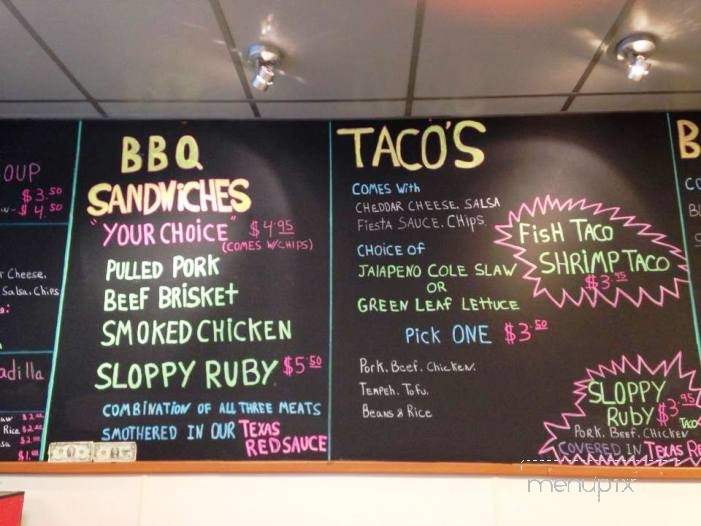 OUP
$3.50
$4.50
Cheese.
Salsa. Chips
adilla
Rice $2.00
$2.00
BBQ
SANDWICHES
"YOUR CHOICE" $4.95
(COMES W/CHIPS)
PULLED PORK
BEEF BRISKET
SMOKED CHICKEN
SLOPPY RUBY $5.50
COMBINATION OF ALL THREE MEATS
SMOTHERED IN OUR TEXAS
RED SAUCE
TACO'S
COMES With
CHEDDAR CHEESE. SALSA
FIESTA SAUCE. CHIPS
CHOICE OF
JALAPENO COLE SLAW
OR
GREEN LEAF LETTUCE
Pick ONE $3.50
Pork. Beef. Chicken.
Tempeh. Tofu.
Beans & Rice
FISH TACO
SHRIMP TACO
$3.95
SLOPPY
RUBY $3.95
TACO
PORK. BEEF. CHICKEN
COVERED IN TEXAS RE
B
menupix